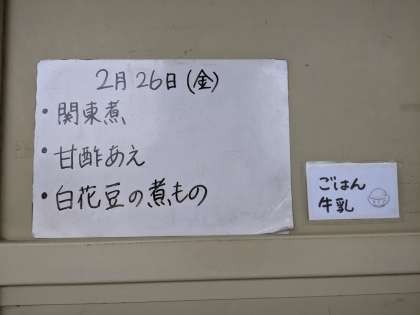 2月26日(金)
・関東煮
・甘酢あえ
・白花豆の煮もの
ごはん
牛乳